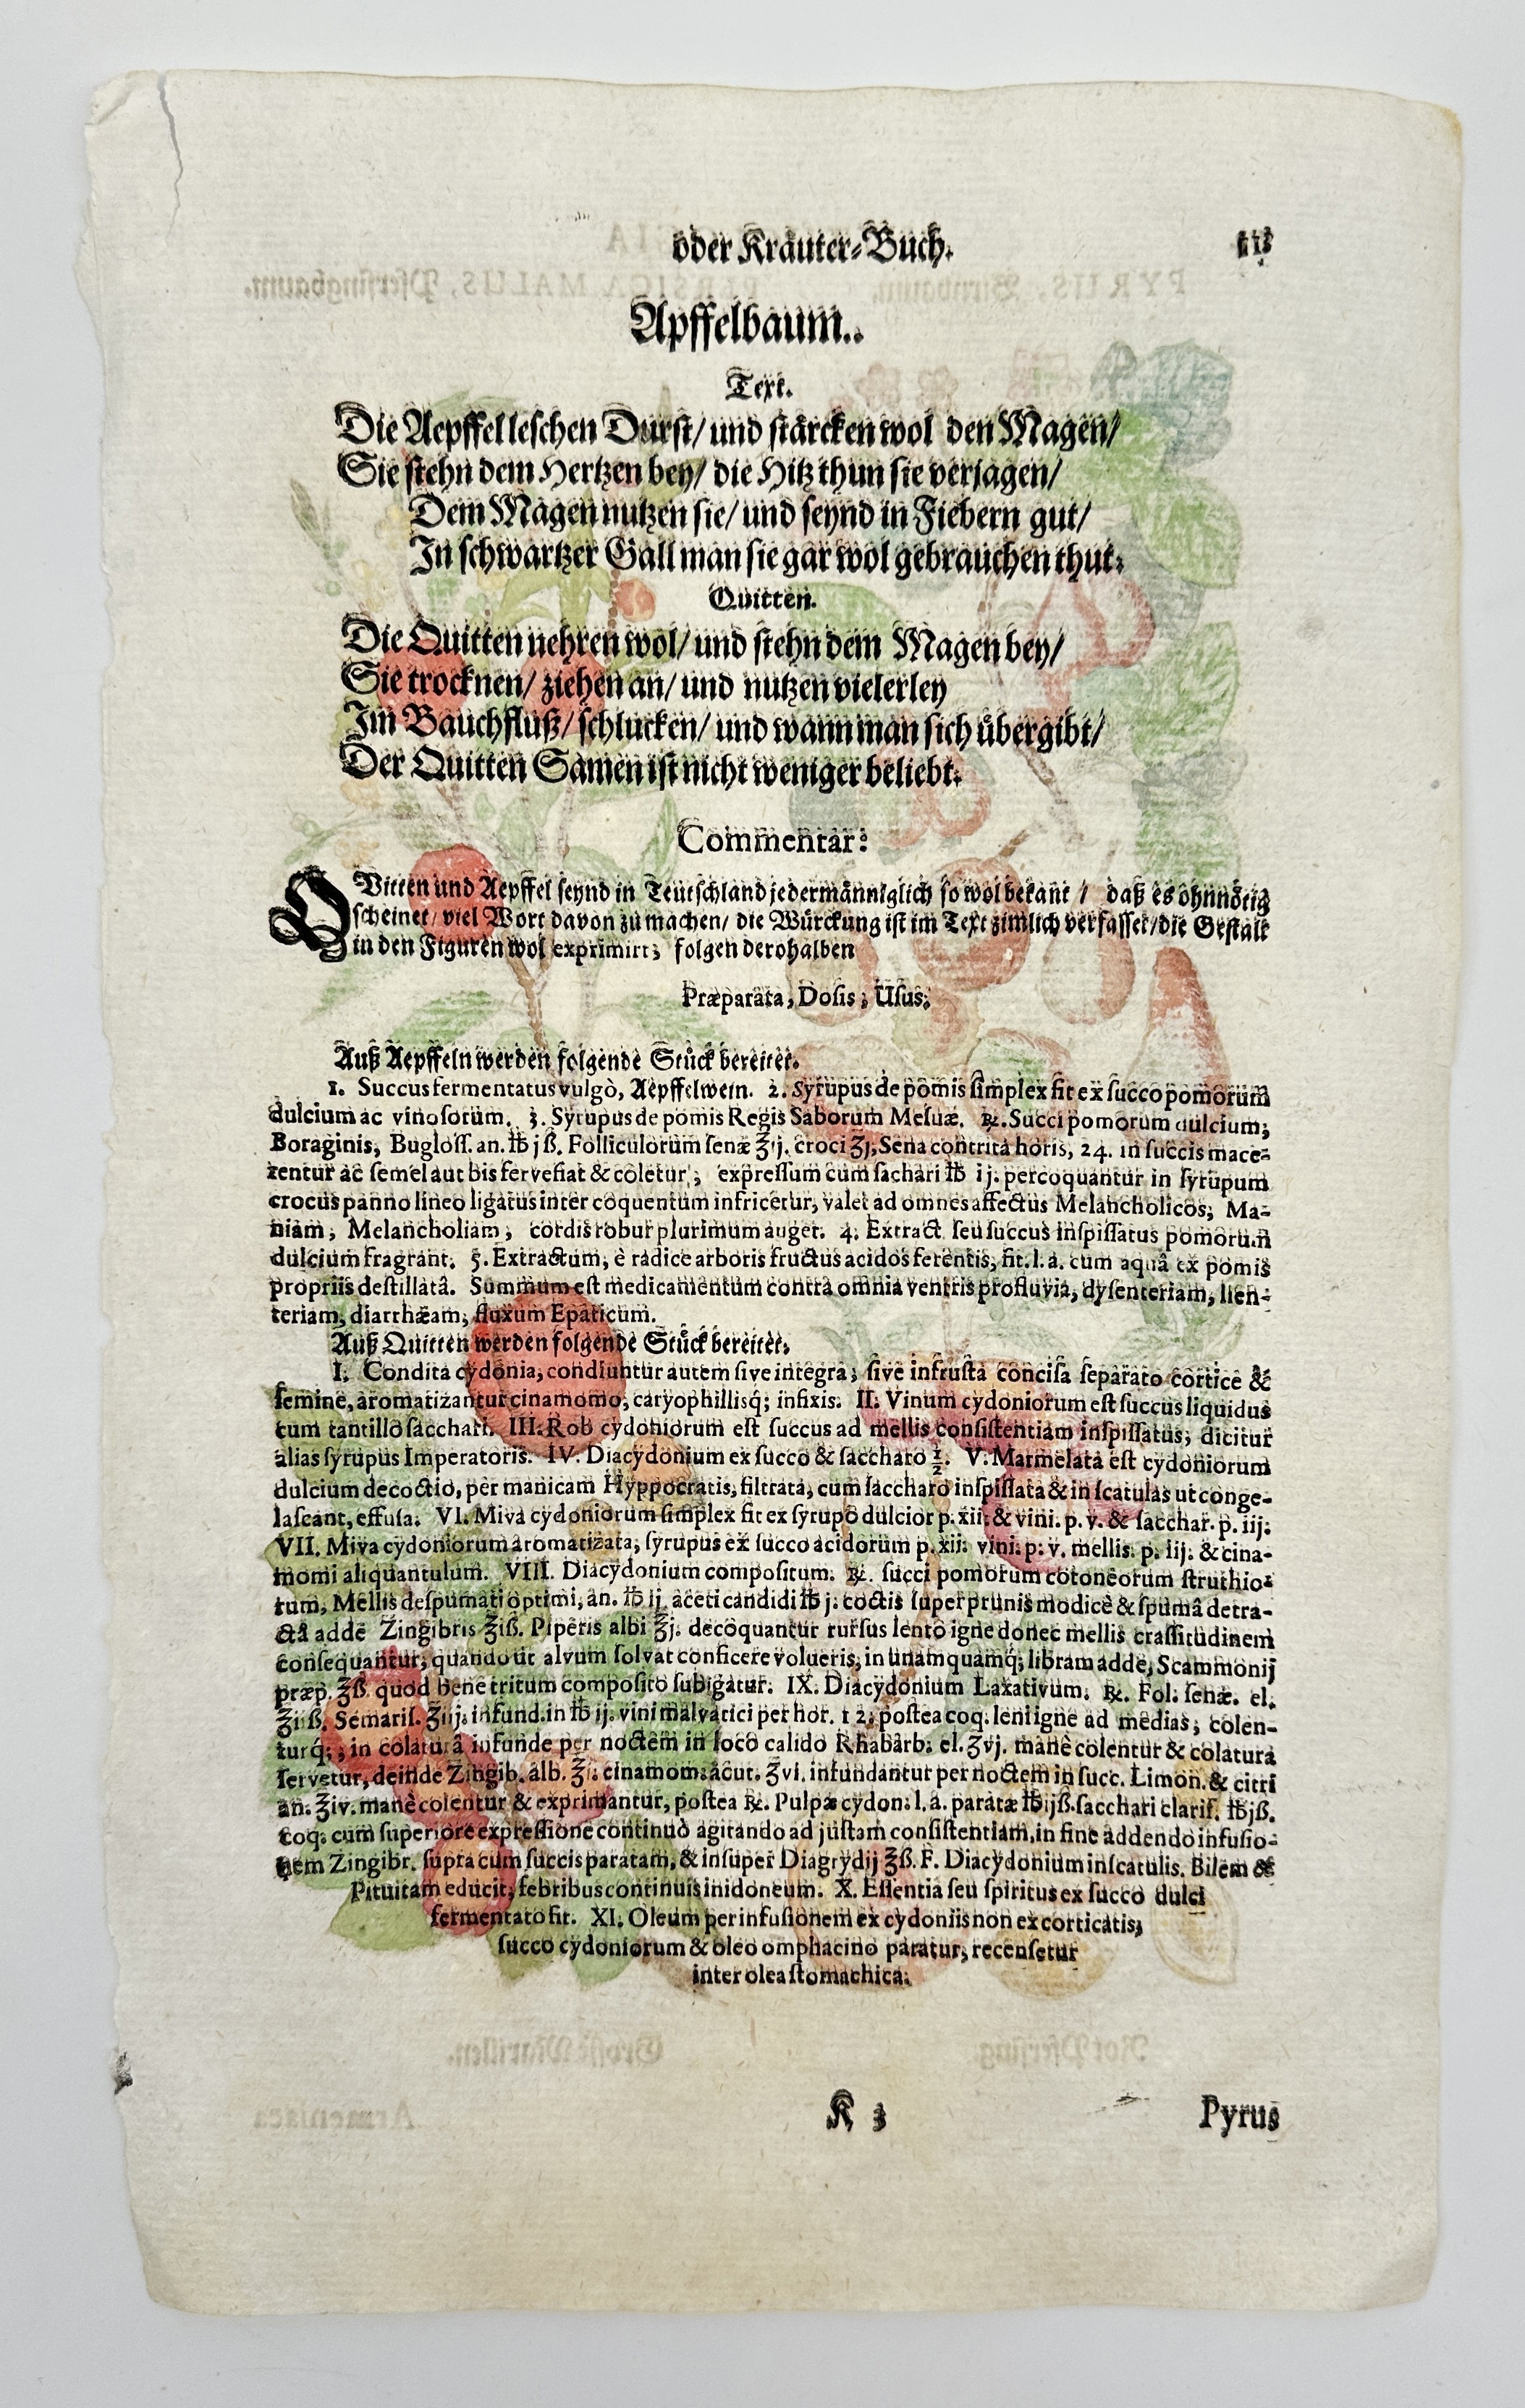 oder Kräuter-Buch.
Apffelbaum.
Text.
Die Aepffel leschen Durst/ und stärcken wol den Magen/
Sie stehn dem Hertzen bey/ die Hitz thun sie verjagen/
Dem Magen nutzen sie/ und seynd in Fiebern gut/
In schwartzer Gall man sie gar wol gebrauchen thut.
Quitten.
Die Quitten nehren wol/ und stehn dem Magen bey/
Sie trocknen/ ziehen an/ und nutzen vielerley
Im Bauchfluß/ schlucken/ und wann man sich übergibt/
Der Quitten Samen ist nicht weniger beliebt.
Commentar:
QVitten und Aepffel seynd in Teutschland jedermänniglich so wol bekant / daß es ohnnötig
scheinet/ viel Wort davon zu machen/ die Würckung ist im Text zimlich verfasset/ die Gestalt
in den Figuren wol exprimirt; folgen derohalben
Præparata, Dosis, Usus.
Auß Aepffeln werden folgende Stück bereitet.
1. Succus fermentatus vulgò, Aepffelwein. 2. Syrupus de pomis simplex fit ex succo pomorum
dulcium ac vinosorum. 3. Syrupus de pomis Regis Saborum Mesuæ. ℞. Succi pomorum dulcium,
Boraginis, Bugloss. an. ℔ j ß. Folliculorum senæ ℥ij. croci ʒj, Sena contrita horis, 24. in succis mace-
rentur ac semel aut bis fervefiat & coletur, expressum cum sachari ℔ ij. percoquantur in syrupum
crocus panno lineo ligatus inter coquentum infricetur, valet ad omnes affectus Melancholicos, Ma-
niam, Melancholiam, cordis robur plurimum auget. 4. Extract seu succus inspissatus pomorum
dulcium fragrant. 5. Extractum, è radice arboris fructus acidos ferentis, fit. l. a. cum aquâ ex pomis
propriis destillatâ. Summum est medicamentum contra omnia ventris profluvia, dysenteriam, lien-
teriam, diarrhæam, fluxum Epaticum.
Auß Quitten werden folgende Stück bereitet.
I. Condita cydonia, condiuntur autem sive integra, sive infrusta concisa separato cortice &
semine, aromatizantur cinamomo, caryophillisq; infixis. II. Vinum cydoniorum est succus liquidus
cum tantillo sacchari. III. Rob cydoniorum est succus ad mellis consistentiam inspissatus, dicitur
alias syrupus Imperatoris. IV. Diacydonium ex succo & saccharo ½. V. Marmelata est cydoniorum
dulcium decoctio, per manicam Hyppocratis, filtrata, cum saccharo inspissata & in scatulas ut conge-
lascant, effusa. VI. Miva cydoniorum simplex fit ex syrupo dulcior p. xii. & vini. p. v. & sacchar. p. iij.
VII. Miva cydoniorum aromatizata, syrupus ex succo acidorum p. xii. vini. p. v. mellis. p. iij. & cina-
momi aliquantulum. VIII. Diacydonium compositum. ℞. succi pomorum cotoneorum struthio-
rum, Mellis despumati optimi, an. ℔ ij aceti candidi ℔ j. coctis super prunis modicè & spumâ detra-
ctâ adde Zingibris ℥iß. Piperis albi ℥j. decoquantur rursus lento igne donec mellis crassitudinem
consequantur, quando ut alvum solvat conficere volueris, in unamquamq; libram adde, Scammonij
præp. ℥ß. quod bene tritum composito subigatur. IX. Diacydonium Laxativum. ℞. Fol. senæ. el.
℥iß. Semaris. ʒiij. infund. in ℔ ij. vini malvatici per hor. 12. postea coq. leni igne ad medias, colen-
turq́;, in colaturâ infunde per noctem in loco calido Rhabarb. el. ʒvj. manè colentur & colatura
servetur, deinde Zingib. alb. cinamom. acut. ʒvi. infundantur per noctem in succ. Limon. & citri
an. ℥iv. manè colentur & exprimantur, postea ℞. Pulpæ cydon. l. a. paratæ ℔ijß. sacchari claris. ℔jß.
coq. cum superiore expressione continuò agitando ad justam consistentiam, in fine addendo infusio-
nem Zingibr. supra cum succis paratam, & insuper Diagrydij ℥ß. F. Diacydonium in scatulis. Bilem &
Pituitam educit, febribus continuis inidoneum. X. Essentia seu spiritus ex succo dulci
fermentato fit. XI. Oleum per infusionem ex cydoniis non excorticatis,
succo cydoniorum & oleo omphacino paratur, recensetur
inter olea stomachica.
K 3
Pyrus